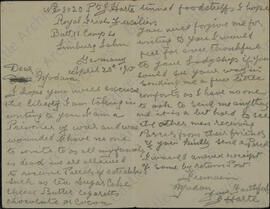 No 3020 Pte J Harte
Royal Irish Fusiliers
Batt. 11 Camp 6
Limburg Lahn
Germany
Dear Sept 20th 1915
Madam
I hope you will excuse
the liberty I am taking in
writing to you I am a
Prisoner of war and was
wounded I have no one
to write to as all my friends
is dead we are allowed
to receive Parcels of eatables
such as tea sugar Cake
Cheese Butter Cigarettes
chocolate or Cocoa
tinned foodstuffs I hope
you will forgive me for
writing to you I would
feel for ever thankful
to your Ladyship if you
could see your way in
sending me a few little
comforts as I have no one
to ask to send me anything
and it is a bit hard to see
the other men receiving
Parcels from their friends
if you kindly send a Parcel
I would answer receipt
of same by return Post
I remain
Madam
yours faithfully
J Harte